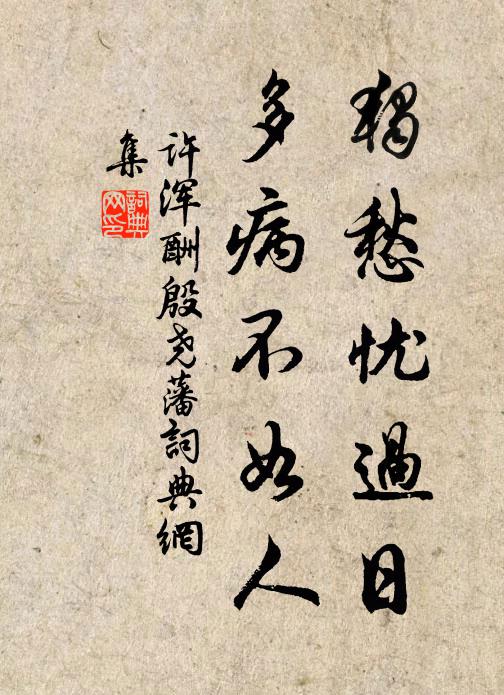 獨愁忧過日
多病不如人
许渾酬殷尧藩詞典網
集
詞典
网印